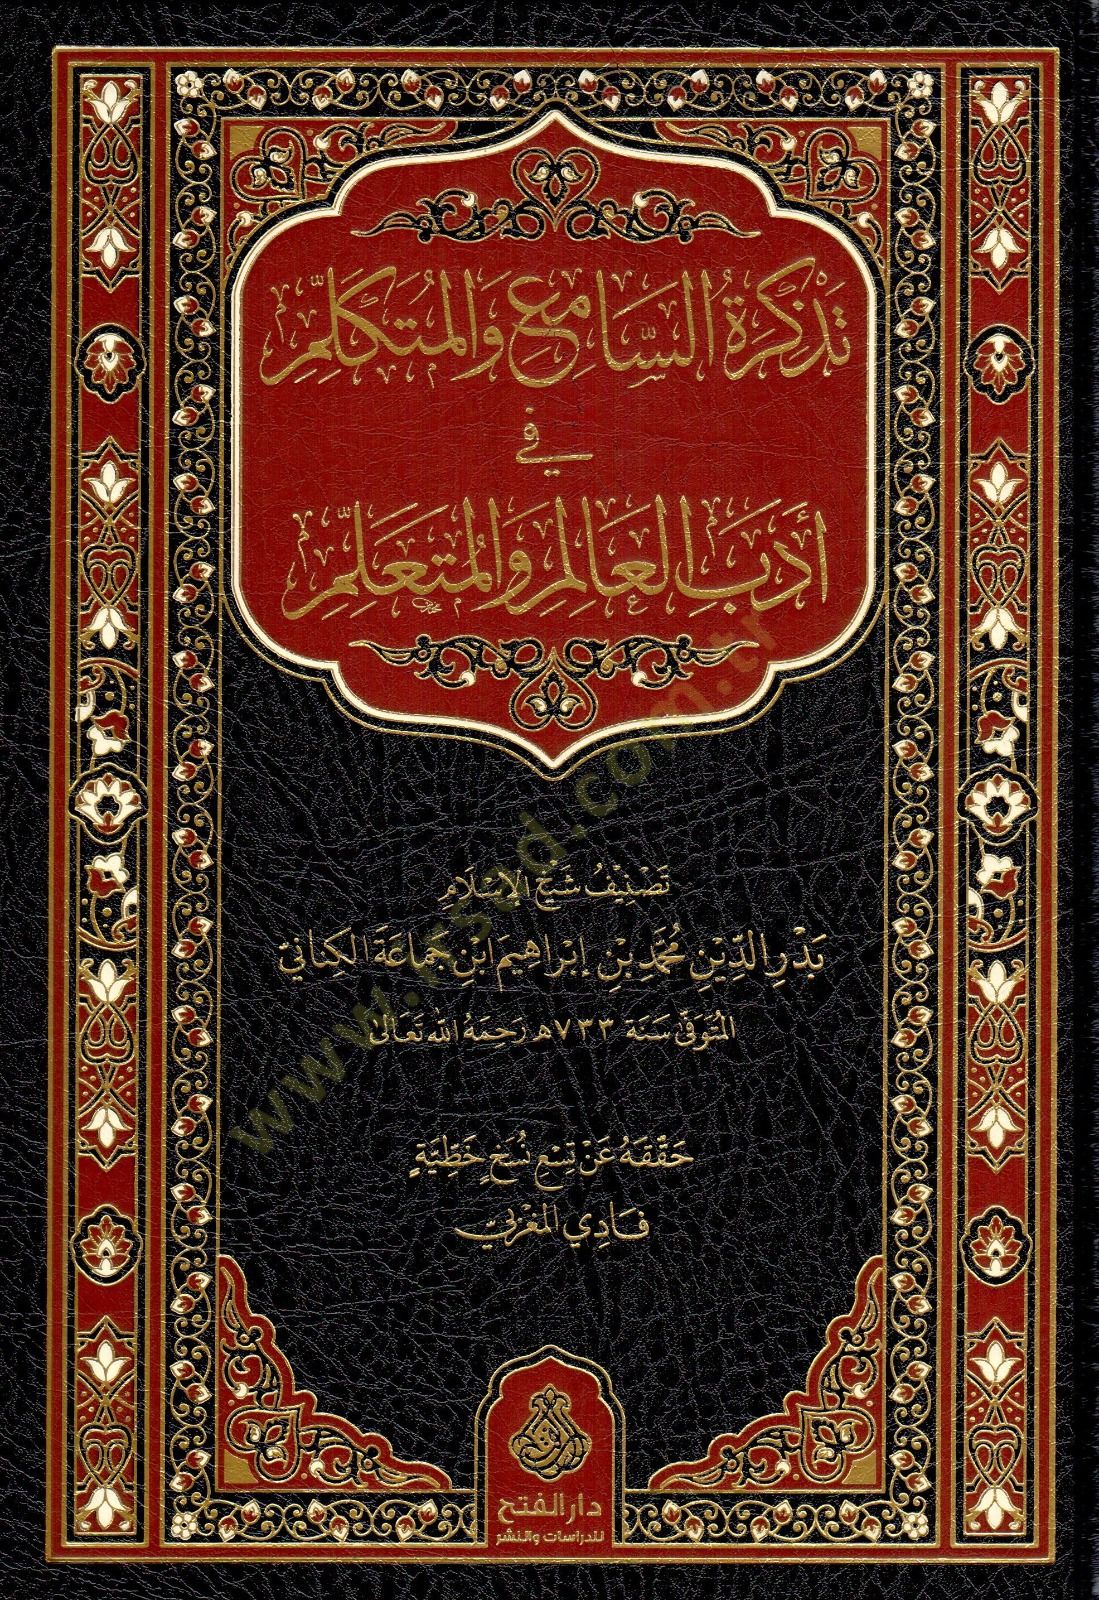 تَذْكِرَةُ السَّامِعِ وَالمُتَكَلِّمِ
في
أَدَبِ العَالِمِ وَالمُتَعَلِّمِ
تَصْنِيفُ شَيْخِ الإِسْلَامِ
بَدْرِ الدِّينِ مُحَمَّدِ بْنِ إِبْرَاهِيمَ ابْنِ جَمَاعَةَ الكِنَانِيّ
المُتَوَفَّى سَنَةَ ٧٣٣ هـ رَحِمَهُ اللهُ تَعَالَى
حَقَّقَهُ عَنْ تِسْعِ نُسَخٍ خَطِّيَّةٍ
فَادِي المَغْرِبيّ
دار الفتح
للدراسات والنشر
www.rsad.com.tr